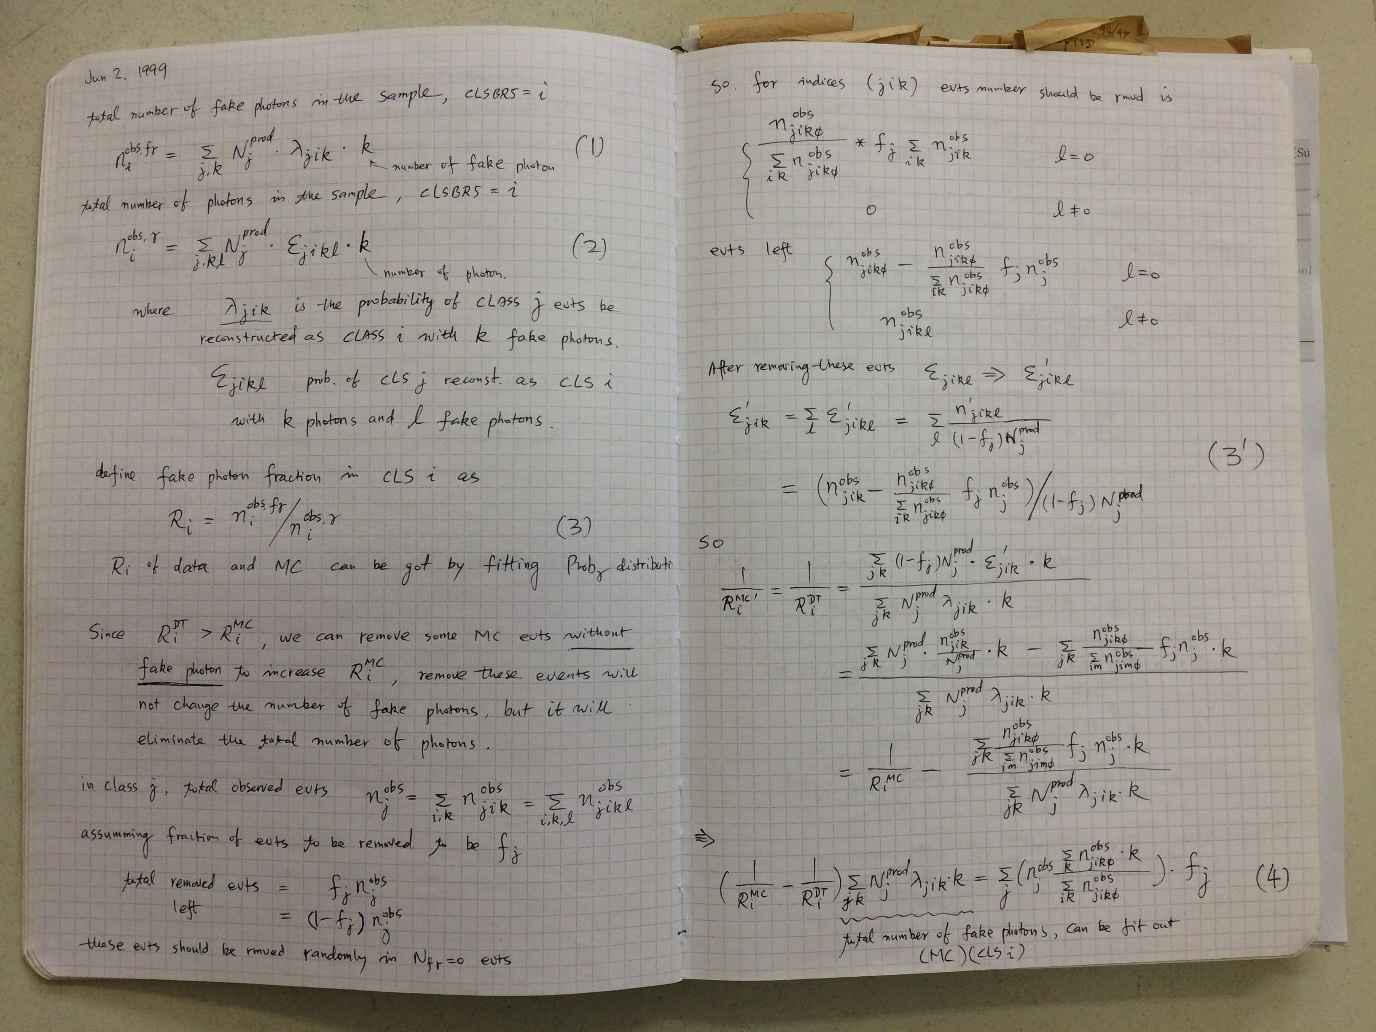 Jun 2. 1999
total number of fake photons in the sample, CLSBRS = i
n_i^{obs,fr} = Σ_{j,k} N_j^{prod} · λ_{jik} · k (1)
number of fake photon
total number of photons in the sample, CLSBRS = i
n_i^{obs,γ} = Σ_{j,k,l} N_j^{prod} · ε_{jikl} · k (2)
number of photon.
where λ_{jik} is the probability of CLASS j evts be
reconstructed as CLASS i with k fake photons.
ε_{jikl} prob. of CLS j reconst. as CLS i
with k photons and l fake photons.
define fake photon fraction in CLS i as
R_i = n_i^{obs,fr} / n_i^{obs,γ} (3)
R_i of data and MC can be got by fitting Prob_γ distributi
Since R_i^{DT} > R_i^{MC}, we can remove some MC evts without
fake photon to increase R_i^{MC}, remove these events will
not change the number of fake photons, but it will
eliminate the total number of photons.
in class j, total observed evts n_j^{obs} = Σ_{i,k} n_{jik}^{obs} = Σ_{i,k,l} n_{jikl}^{obs}
assumming fraction of evts to be removed to be f_j
total removed evts = f_j n_j^{obs}
left = (1-f_j) n_j^{obs}
these evts should be rmved randomly in N_{fr}=0 evts
so. for indices (jik) evts number should be rmvd is
{ n_{jikφ}^{obs} / Σ_{ik} n_{jikφ}^{obs} * f_j Σ_{ik} n_{jik}^{obs} l=0
0 l≠0
evts left { n_{jikφ}^{obs} - n_{jikφ}^{obs} / Σ_{ik} n_{jikφ}^{obs} f_j n_j^{obs} l=0
n_{jikl}^{obs} l≠0
After removing these evts ε_{jikl} ⇒ ε'_{jikl}
ε'_{jik} = Σ_l ε'_{jikl} = Σ_l n'_{jikl} / (1-f_j) N_j^{prod}
(3')
= (n_{jik}^{obs} - n_{jikφ}^{obs} / Σ_{ik} n_{jikφ}^{obs} f_j n_j^{obs}) / (1-f_j) N_j^{prod}
so
1/R_i^{MC'} = 1/R_i^{DT} = Σ_{jk} (1-f_j) N_j^{prod} · ε'_{jik} · k / Σ_{jk} N_j^{prod} λ_{jik} · k
= Σ_{jk} N_j^{prod} · n_{jik}^{obs} / N_j^{prod} · k - Σ_{jk} n_{jikφ}^{obs} / Σ_{im} n_{jimφ}^{obs} f_j n_j^{obs} · k / Σ_{jk} N_j^{prod} λ_{jik} · k
= 1/R_i^{MC} - Σ_{jk} n_{jikφ}^{obs} / Σ_{im} n_{jimφ}^{obs} f_j n_j^{obs} · k / Σ_{jk} N_j^{prod} λ_{jik} · k
⇒
(1/R_i^{MC} - 1/R_i^{DT}) Σ_{jk} N_j^{prod} λ_{jik} · k = Σ_j (n_j^{obs} Σ_k n_{jikφ}^{obs} · k / Σ_{ik} n_{jikφ}^{obs}) · f_j (4)
total number of fake photons, can be fit out
(MC) (CLS i)